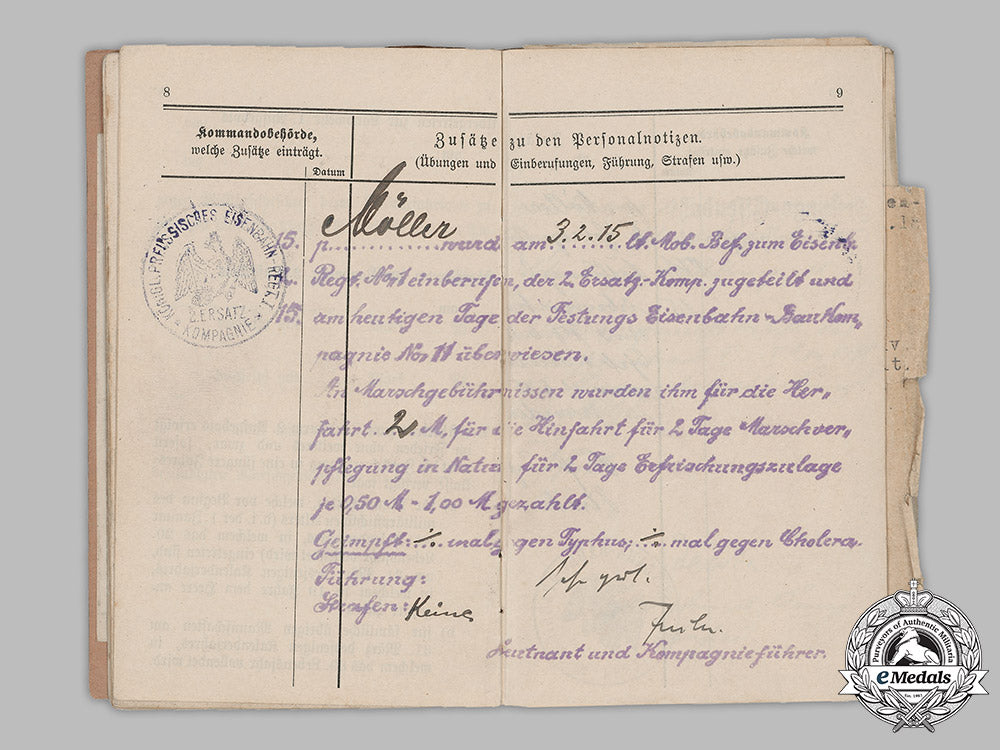 8
9
Kommandobehörde,
welche Zusätze einträgt.
Datum
Zusätze zu den Personalnotizen.
(Übungen und Einberufungen, Führung, Strafen usw.)
KÖNIGL. PREUSSISCHES EISENBAHN REGT. 1
2. ERSATZ
KOMPAGNIE
Möller
15. p. wurde am 3.2.15 lt. Mob. Bef. zum Eisenb.
Regt. No 1 einberufen, der 2 Ersatz-Komp. zugeteilt und
15. am heutigen Tage der Festungs Eisenbahn-Baukom„
pagnie No 11 überwiesen.
An Marschgebührnissen wurden ihm für die Her„
fahrt 2 M, für die Hinfahrt für 2 Tage Marschver„
pflegung in Natur für 2 Tage Erfrischungszulage
je 0,50 M - 1,00 M gezahlt.
Geimpft: mal gegen Typhus; mal gegen Cholera.
Führung: sehr gut.
Strafen: Keine
Leutnant und Kompagnieführer.
v.
Purveyors of Authentic Militaria
eMedals
Est. 1967